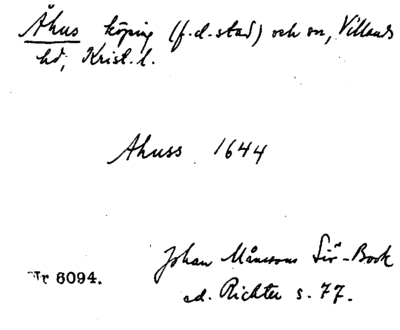 Åhus köping (f.d. stad) och sn, Villands
hd, Krist. l.
Ahuss 1644
Johan Månssons Siö-Book
ed. Richter s. 77.
Nr 6094.